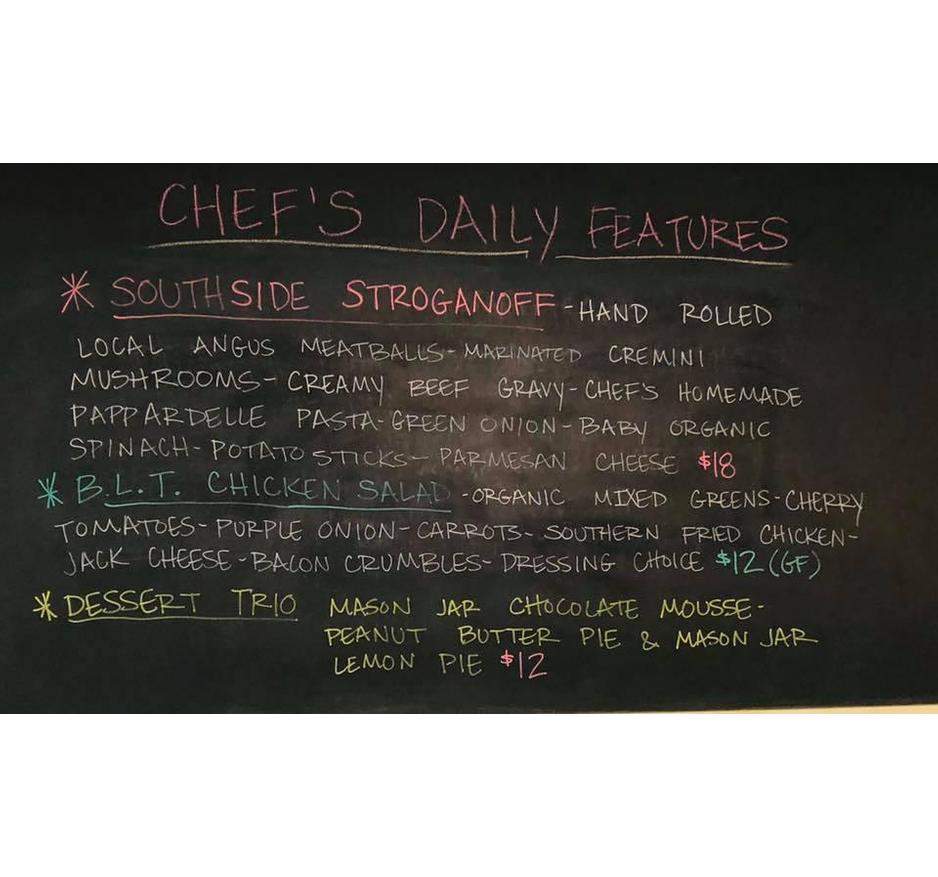 CHEF'S DAILY FEATURES
* SOUTHSIDE STROGANOFF - HAND ROLLED
LOCAL ANGUS MEATBALLS - MARINATED CREMINI
MUSHROOMS - CREAMY BEEF GRAVY - CHEF'S HOMEMADE
PAPPARDELLE PASTA - GREEN ONION - BABY ORGANIC
SPINACH - POTATO STICKS - PARMESAN CHEESE $18
* B.L.T. CHICKEN SALAD - ORGANIC MIXED GREENS - CHERRY
TOMATOES - PURPLE ONION - CARROTS - SOUTHERN FRIED CHICKEN -
JACK CHEESE - BACON CRUMBLES - DRESSING CHOICE $12 (GF)
* DESSERT TRIO MASON JAR CHOCOLATE MOUSSE -
PEANUT BUTTER PIE & MASON JAR
LEMON PIE $12